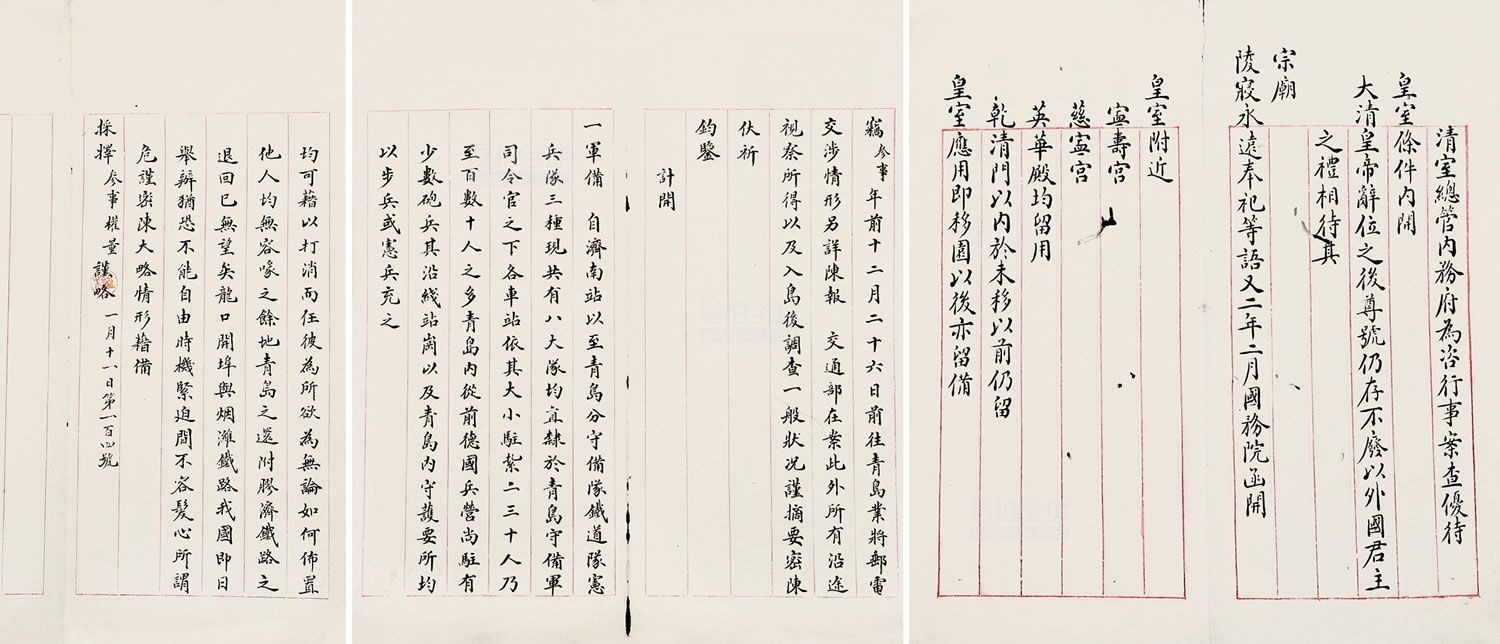 清室總管內務府為咨行事案查優待
皇室條件內開
大清皇帝辭位之後尊號仍存不廢以外國君主
之禮相待其
宗廟
陵寢永遠奉祀等語又二年二月國務院函開
皇室附近
寍壽宮
慈寍宮
英華殿均留用
乾清門以內於未移以前仍留
皇室應用即移園以後亦留備
竊參事年前十二月二十六日前往青島業將郵電
交涉情形另詳陳報 交通部在案此外所有沿途
視察所得以及入島後調查一般狀況謹摘要密陳
伏祈
鈞鑒
計開
一軍備 自濟南站以至青島分守備隊鐵道隊憲
兵隊三種現共有八大隊均直隸於青島守備軍
司令官之下各車站依其大小駐紮二三十人乃
至百數十人之多青島內從前德國兵營尚駐有
少數砲兵其沿綫站崗以及青島內守護要所均
以步兵或憲兵充之
均可藉以打消而任彼為所欲為無論如何佈置
他人均無容喙之餘地青島之還附膠濟鐵路之
退回已無望矣龍口開埠與烟濰鐵路我國即日
舉辦猶恐不能自由時機緊迫間不容髮心所謂
危謹密陳大略情形藉備
採擇 參事權量謹略 一月十八日第一百四號